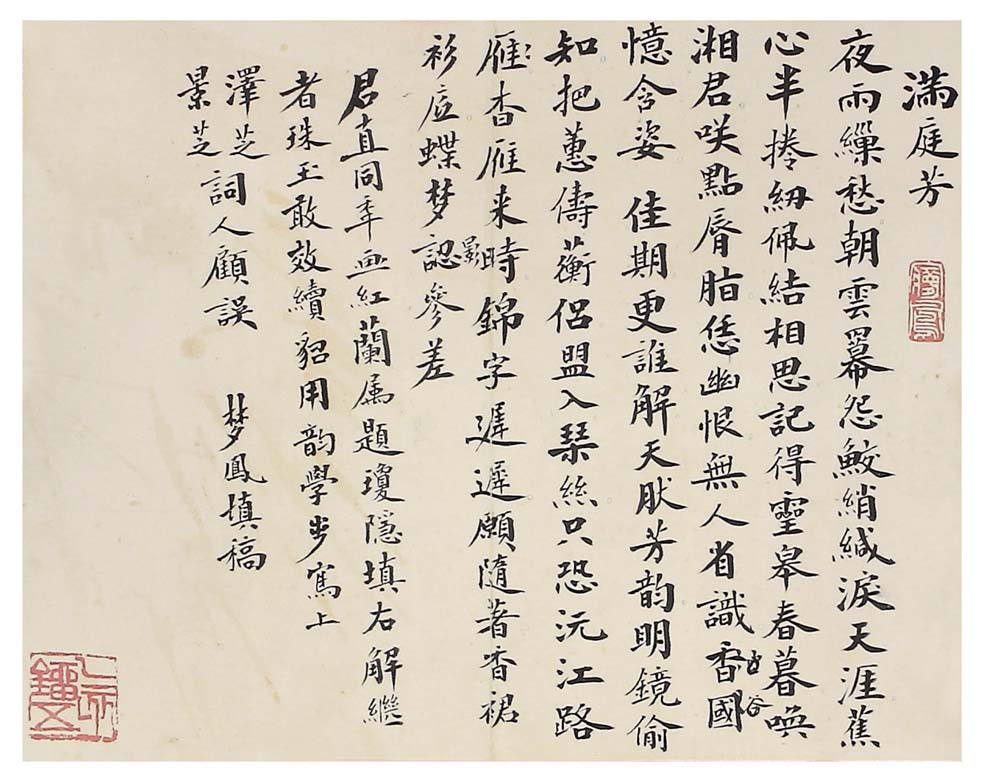 滿庭芳
夜雨繅愁朝雲冪怨鮫綃緘淚天涯蕉
心半捲紉佩結相思記得靈皋春暮喚
湘君咲點脣脂恁幽恨無人省識香國
谷
憶含姿 佳期更誰解天肰芳韵明鏡偷
知把蕙儔蘅侶盟入琹絲只恐沅江路
杳雁来時錦字遲遲願隨著香裙
衫底蝶梦認參差
影
君直同年画紅蘭属題瓊隱填右解繼
者珠玉敢效續貂用韵學步寫上
澤芝
景芝
詞人顧誤
梦鳳填稿